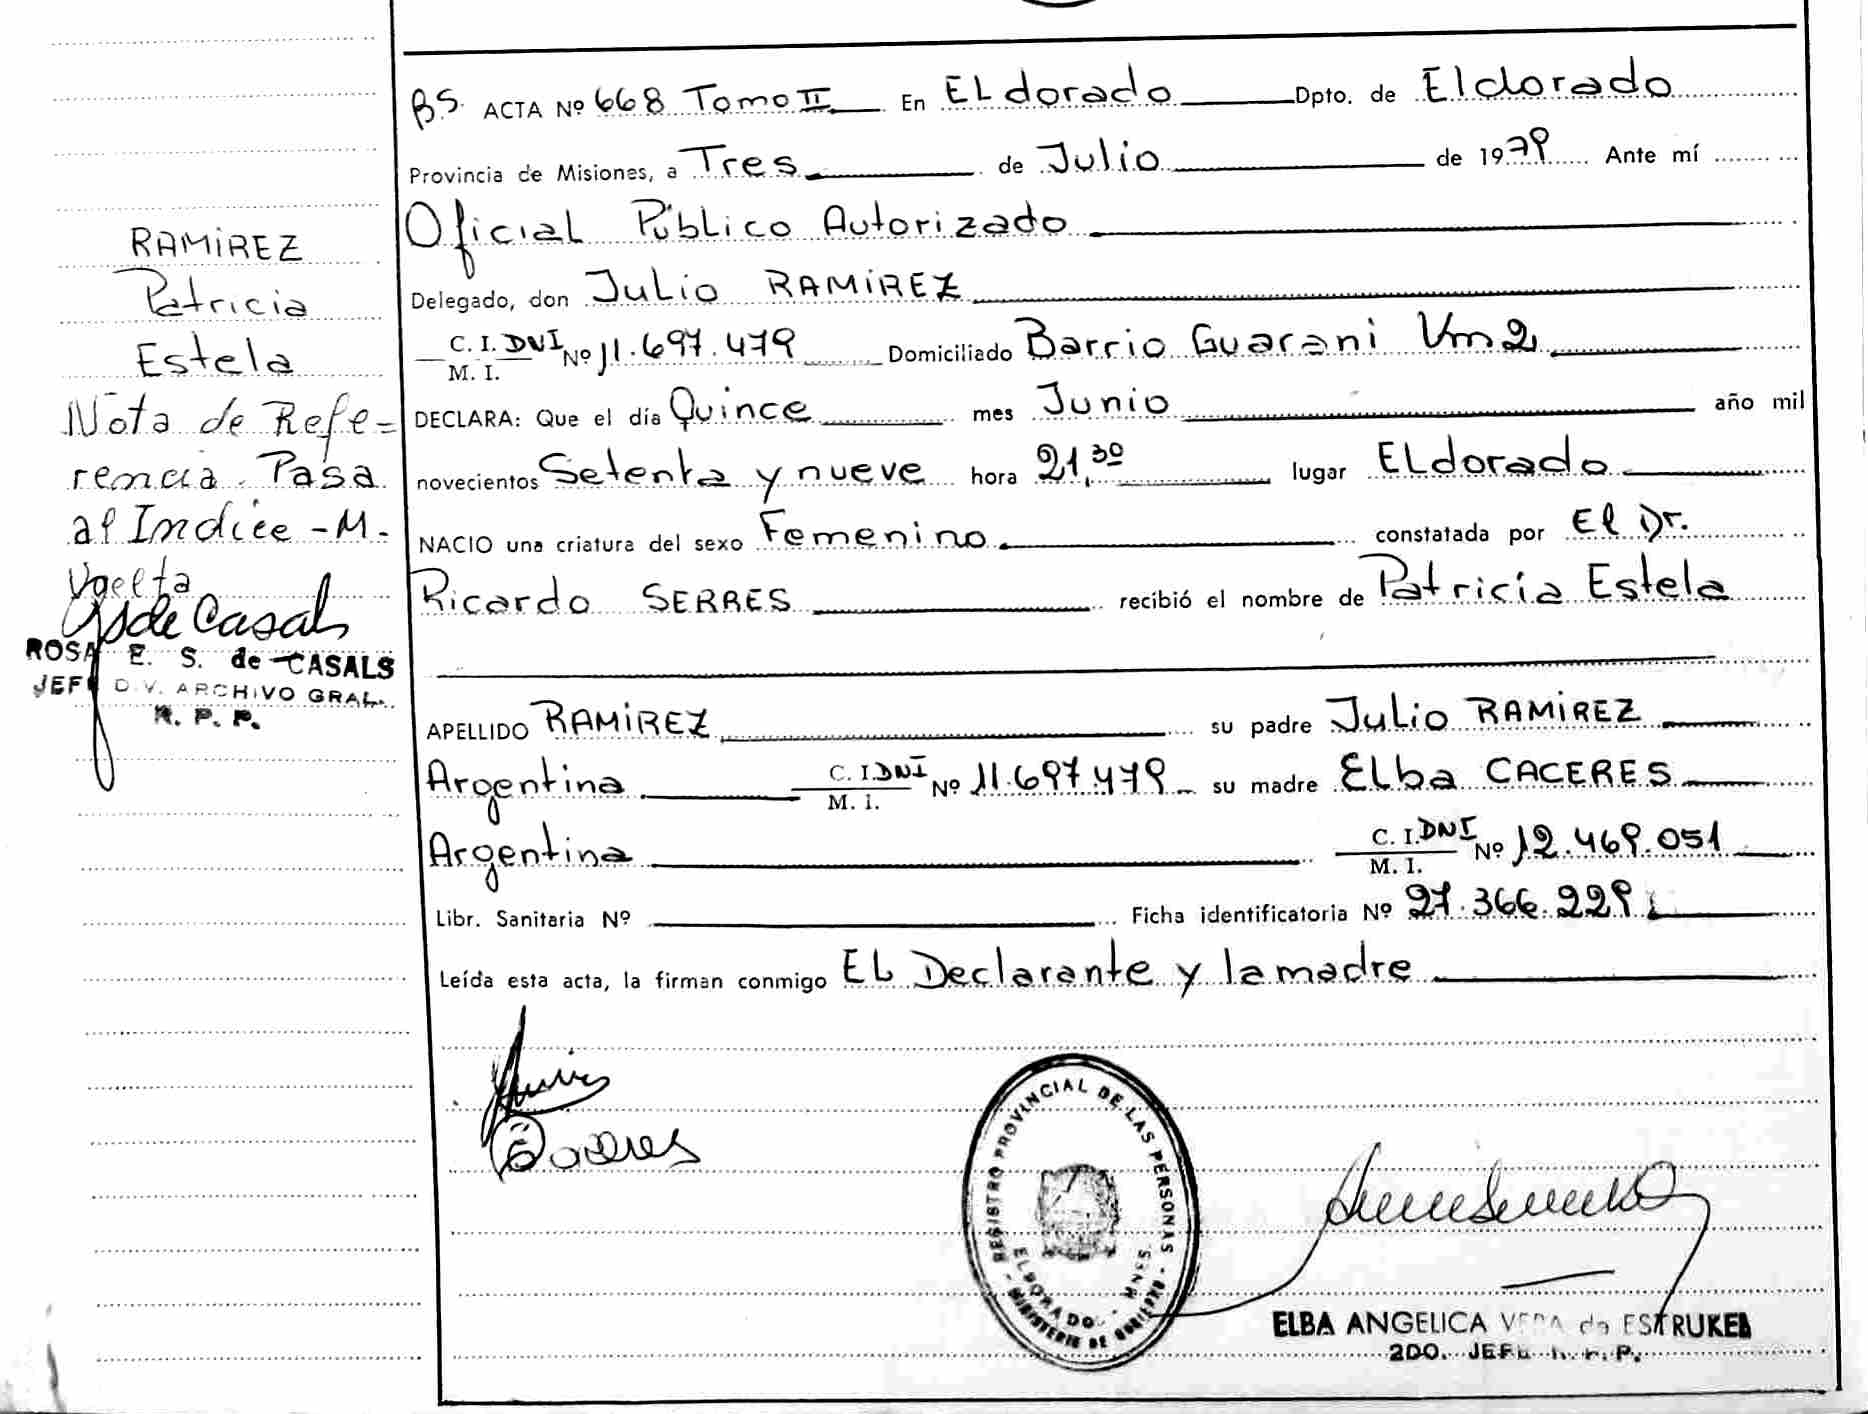 RAMIREZ
Patricia
Estela
Nota de Refe=
rencia. Pasa
al Indice - M.
Vuelta
GSde Casals
ROSA E. S. de CASALS
JEFE DIV. ARCHIVO GRAL.
R. P. P.
BS. ACTA Nº 668 Tomo II En ELdorado Dpto. de Eldorado
Provincia de Misiones, a Tres de Julio de 1979 Ante mí
Oficial Público Autorizado
Delegado, don Julio RAMIREZ
C. I. DNI M. I. Nº 11.697.479 Domiciliado Barrio Guarani Km2
DECLARA: Que el día Quince mes Junio año mil
novecientos Setenta y nueve hora 21,30 lugar ELdorado
NACIO una criatura del sexo Femenino constatada por El Dr.
Ricardo SERRES recibió el nombre de Patricia Estela
APELLIDO RAMIREZ su padre Julio RAMIREZ
Argentina C. I. DNI M. I. Nº 11.697.479 su madre Elba CACERES
Argentina C. I. DNI M. I. Nº 12.469.051
Libr. Sanitaria Nº Ficha identificatoria Nº 27.366.229
Leída esta acta, la firman conmigo EL Declarante y la madre
REGISTRO PROVINCIAL DE LAS PERSONAS
ELDORADO - MNES.
MINISTERIO DE GOBIERNO
ELBA ANGELICA VERA de ESTRUKEL
2DO. JEFE R. P. P.